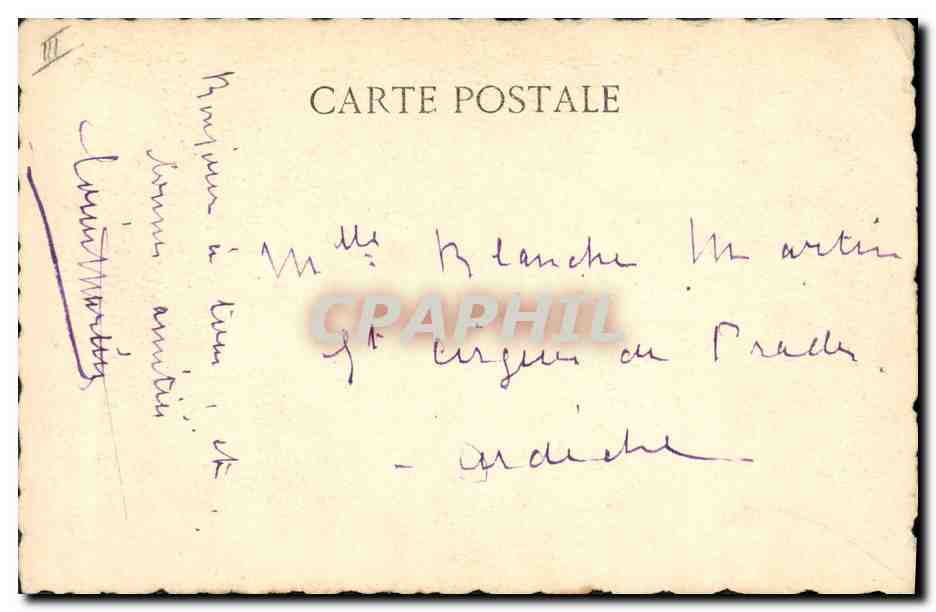 III
CARTE POSTALE
Bonjour à tous, et
bonnes amitiés.
Louis Martin
Mlle Blanche Martin
St Cirgues de Prades
- Ardèche -
CPAPHIL